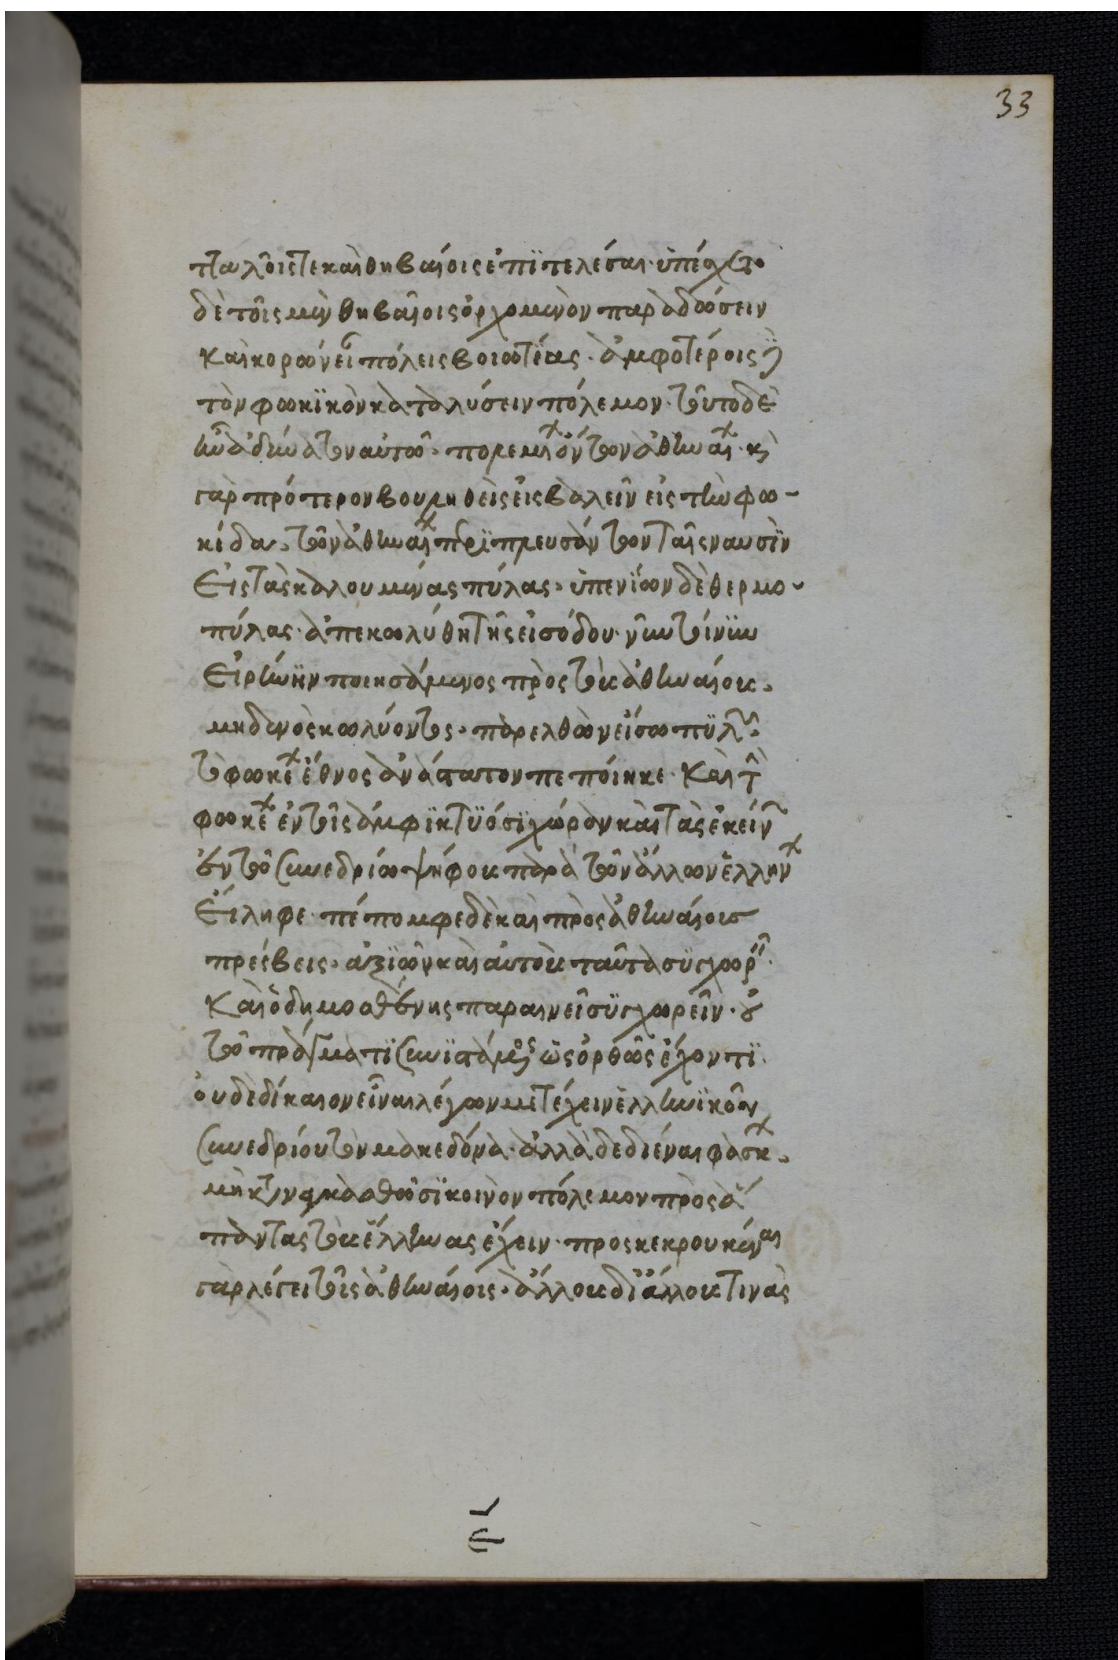 33
τταλοῖς τε καὶ θηβαίοις ἐπιτελέσαι· ὑπέσχετο
δὲ τοῖς μὲν θηβαίοις ὀρχομενὸν παραδώσειν
καὶ κορώνει πόλεις βοιωτίας· ἀμφοτέροις
τὸν φωκικὸν καταλύσειν πόλεμον· τοῦτο δὲ
ἦν ἀδύνατον αὐτῶ· πολεμ όντων ἀθηναι· κ
γὰρ πρότερον βουληθεὶς εἰσβαλεῖν εἰς τὴν φω-
κίδα· τῶν ἀθηναι περιπλευσάντων ταῖς ναυσὶν
εἰς τὰς καλουμένας πύλας· ὑπ' ἐνίων δὲ θερμο-
πύλας· ἀπεκωλύθη τῆς εἰσόδου· νῦν τοίνυν
εἰρήνην ποιησάμενος πρὸς τοὺς ἀθηναίους·
μηδενὸς κωλύοντος· παρελθὼν εἴσω πυλ
τὸ φωκε ἔθνος ἀνάστατον πεπόιηκε· καὶ τ
φωκε ἐν τοῖς ἀμφικτύοσι χώραν καὶ τὰς ἐκείν
ἐν τῶ συνεδρίω ψήφους παρὰ τῶν ἄλλων ἑλλήν
εἴληφε· πέπομφε δὲ καὶ πρὸς ἀθηναίους
πρέσβεις· ἀξιῶν καὶ αὐτοὺς ταῦτα συγχωρ
καὶ ὁ δημοσθένης παραινεῖ συγχωρεῖν· οὐ
τῶ πράγματι συνιστάμος ὡς ὀρθῶς ἔχοντι·
οὐδὲ δίκαιον εἶναι λέγων μετέχειν ἑλληνικοῦ
συνεδρίου τὸν μακεδόνα· ἀλλὰ δεδιέναι φάσκ·
μὴ ἀναγκασθῶσι κοινὸν πόλεμον πρὸς ἅ
πάντας τοὺς ἕλληνας ἔχειν· προσκεκρουκέναι
γὰρ λέγει τοῖς ἀθηναίοις· ἄλλους δι' ἄλλους τινὰς
ε